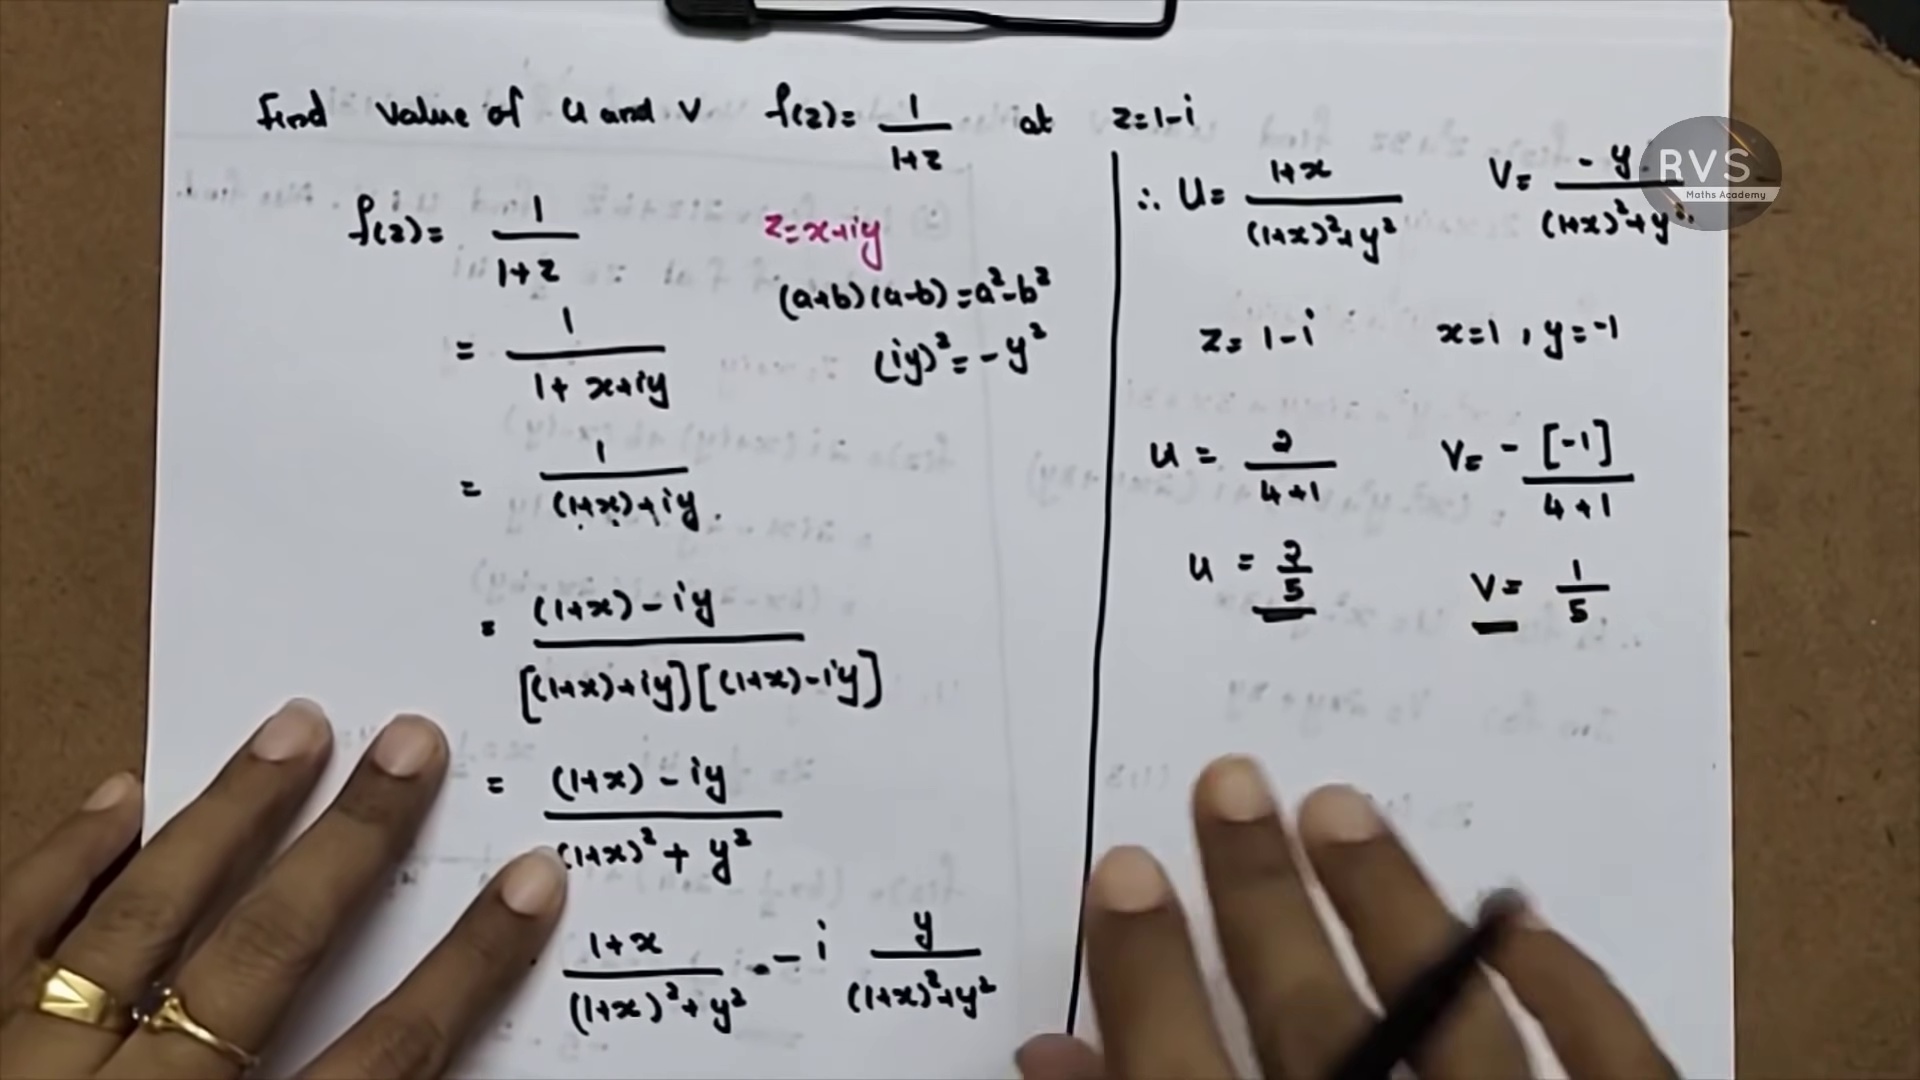 Find value of u and v f(z)= 1/(1+z) at z=1-i
f(z)= 1/(1+z)
z=x+iy
(a+b)(a-b)=a²-b²
= 1/(1+x+iy)
(iy)²=-y²
= 1/((1+x)+iy)
= ((1+x)-iy)/([(1+x)+iy][(1+x)-iy])
= ((1+x)-iy)/((1+x)²+y²)
(1+x)/((1+x)²+y²) - i y/((1+x)²+y²)
∴ u= (1+x)/((1+x)²+y²) v= -y/((1+x)²+y²)
z=1-i x=1, y=-1
u = 2/(4+1) v= -[-1]/(4+1)
u = 2/5 v= 1/5
RVS
Maths Academy